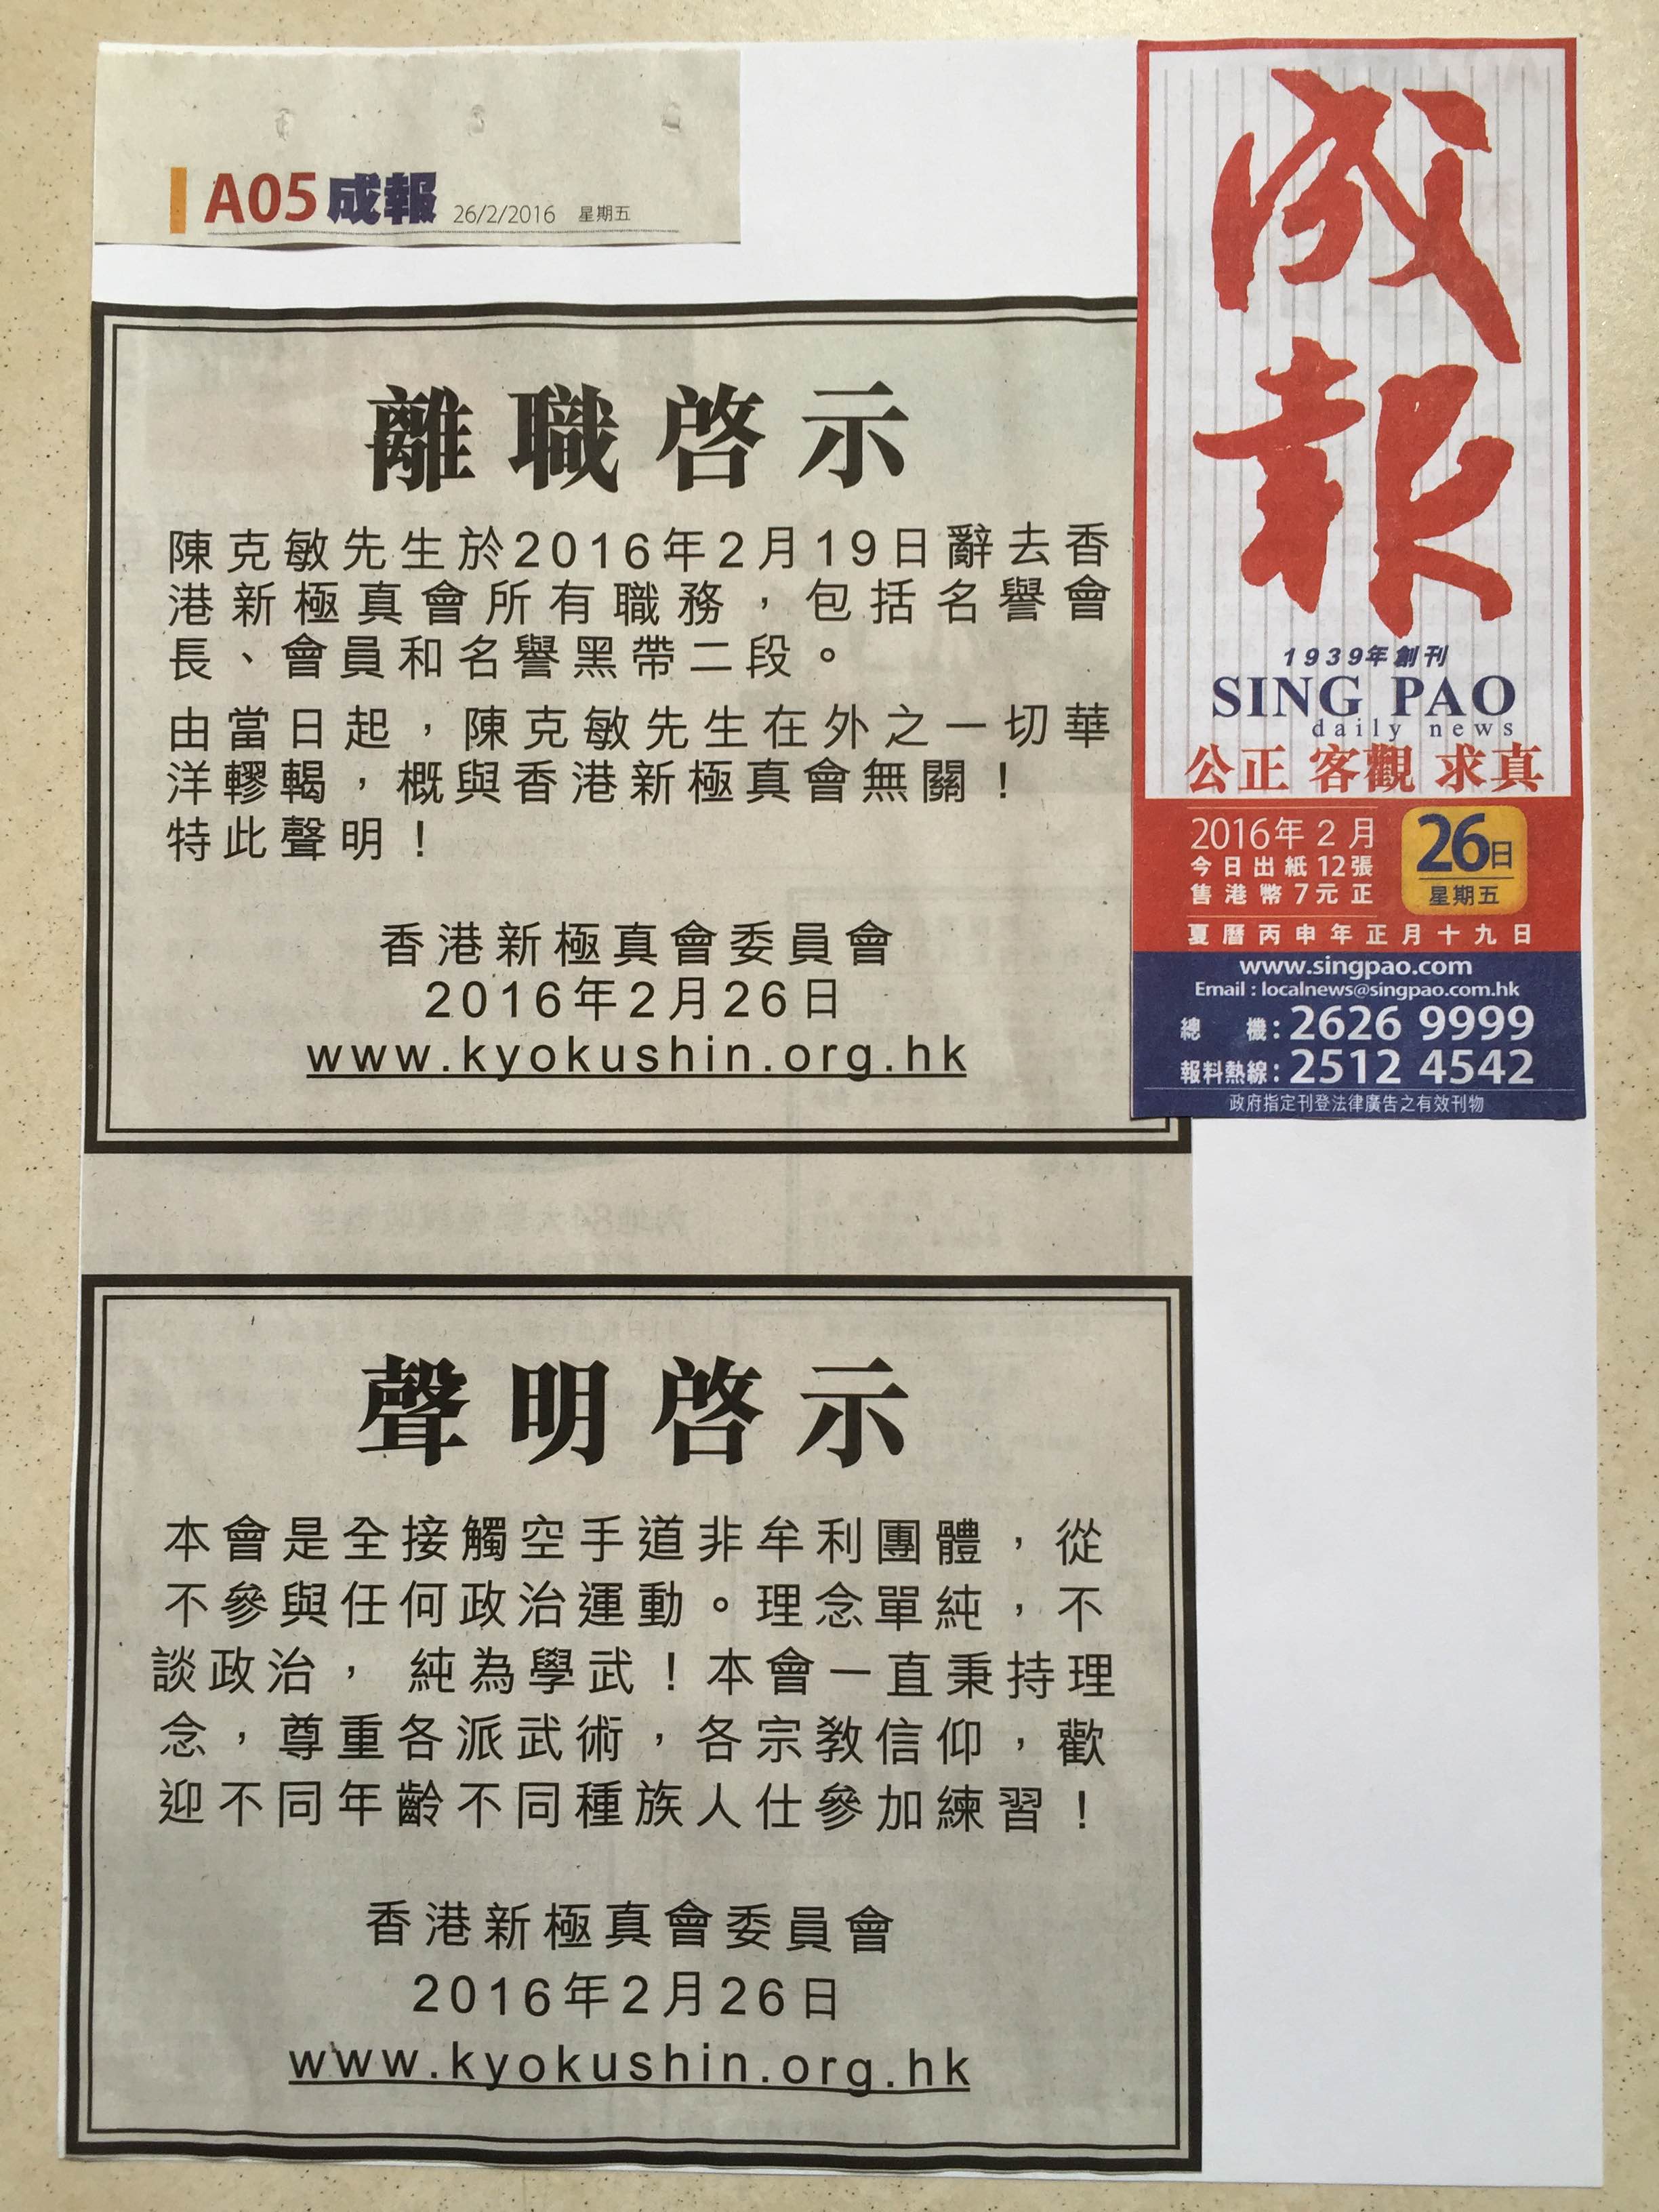 A05 成報 26/2/2016 星期五
離職啓示
陳克敏先生於2016年2月19日辭去香
港新極真會所有職務，包括名譽會
長、會員和名譽黑帶二段。
由當日起，陳克敏先生在外之一切華
洋轇轕，概與香港新極真會無關！
特此聲明！
香港新極真會委員會
2016年2月26日
www.kyokushin.org.hk
聲明啓示
本會是全接觸空手道非牟利團體，從
不參與任何政治運動。理念單純，不
談政治， 純為學武！本會一直秉持理
念，尊重各派武術，各宗教信仰，歡
迎不同年齡不同種族人仕參加練習！
香港新極真會委員會
2016年2月26日
www.kyokushin.org.hk
成報
1939年創刊
SING PAO
daily news
公正 客觀 求真
2016年2月
26日
今日出紙12張
售港幣7元正
星期五
夏曆丙申年正月十九日
www.singpao.com
Email : localnews@singpao.com.hk
總機：2626 9999
報料熱線：2512 4542
政府指定刊登法律廣告之有效刊物